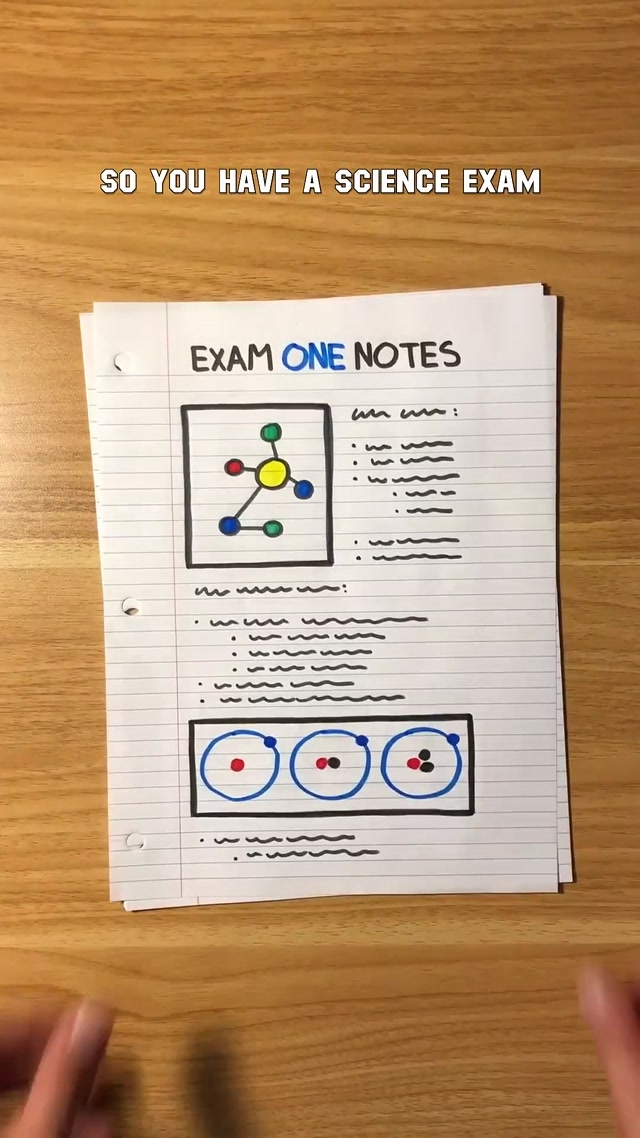 SO YOU HAVE A SCIENCE EXAM
EXAM ONE NOTES